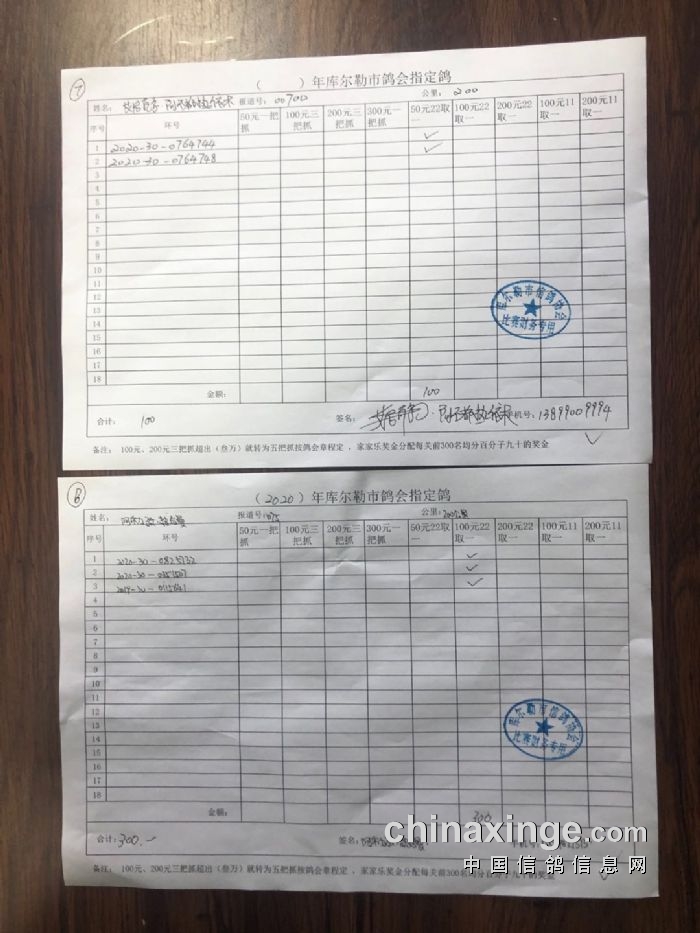 ⑦
（ ）年库尔勒市鸽会指定鸽
姓名： 报道号：00700 公里：200
序号 环号 50元一把抓 100元三把抓 200元三把抓 300元一把抓 50元22取一 100元22取一 200元22取一 100元11取一 200元11取一
1 2020-30-0764744 ✓
2 2020-30-0764748 ✓
3
4
5
6
7
8
9
10
11
12
13
14
15
16
17
18
库尔勒市信鸽协会
比赛财务专用
金额： 100
合计： 100 签名： 手机号：13899009994
备注： 100元、200元三把抓超出（叁万）就转为五把抓按鸽会章程定 ，家家乐奖金分配每关前300名均分百分子九十的奖金
⑧
（2020）年库尔勒市鸽会指定鸽
姓名： 报道号： 公里：
序号 环号 50元一把抓 100元三把抓 200元三把抓 300元一把抓 50元22取一 100元22取一 200元22取一 100元11取一 200元11取一
1 2020-30-0825732 ✓
2 2020-30- ✓
3 2019-30- ✓
4
5
6
7
8
9
10
11
12
13
14
15
16
17
18
库尔勒市信鸽协会
比赛财务专用
金额： 300
合计：300.- 签名： 手机号
备注： 100元、200元三把抓超出（叁万）就转为五把抓按鸽会章程定 ，家家乐奖金分配每关前300名均分百分子九十的奖金
chinaxinge.com
中国信鸽信息网